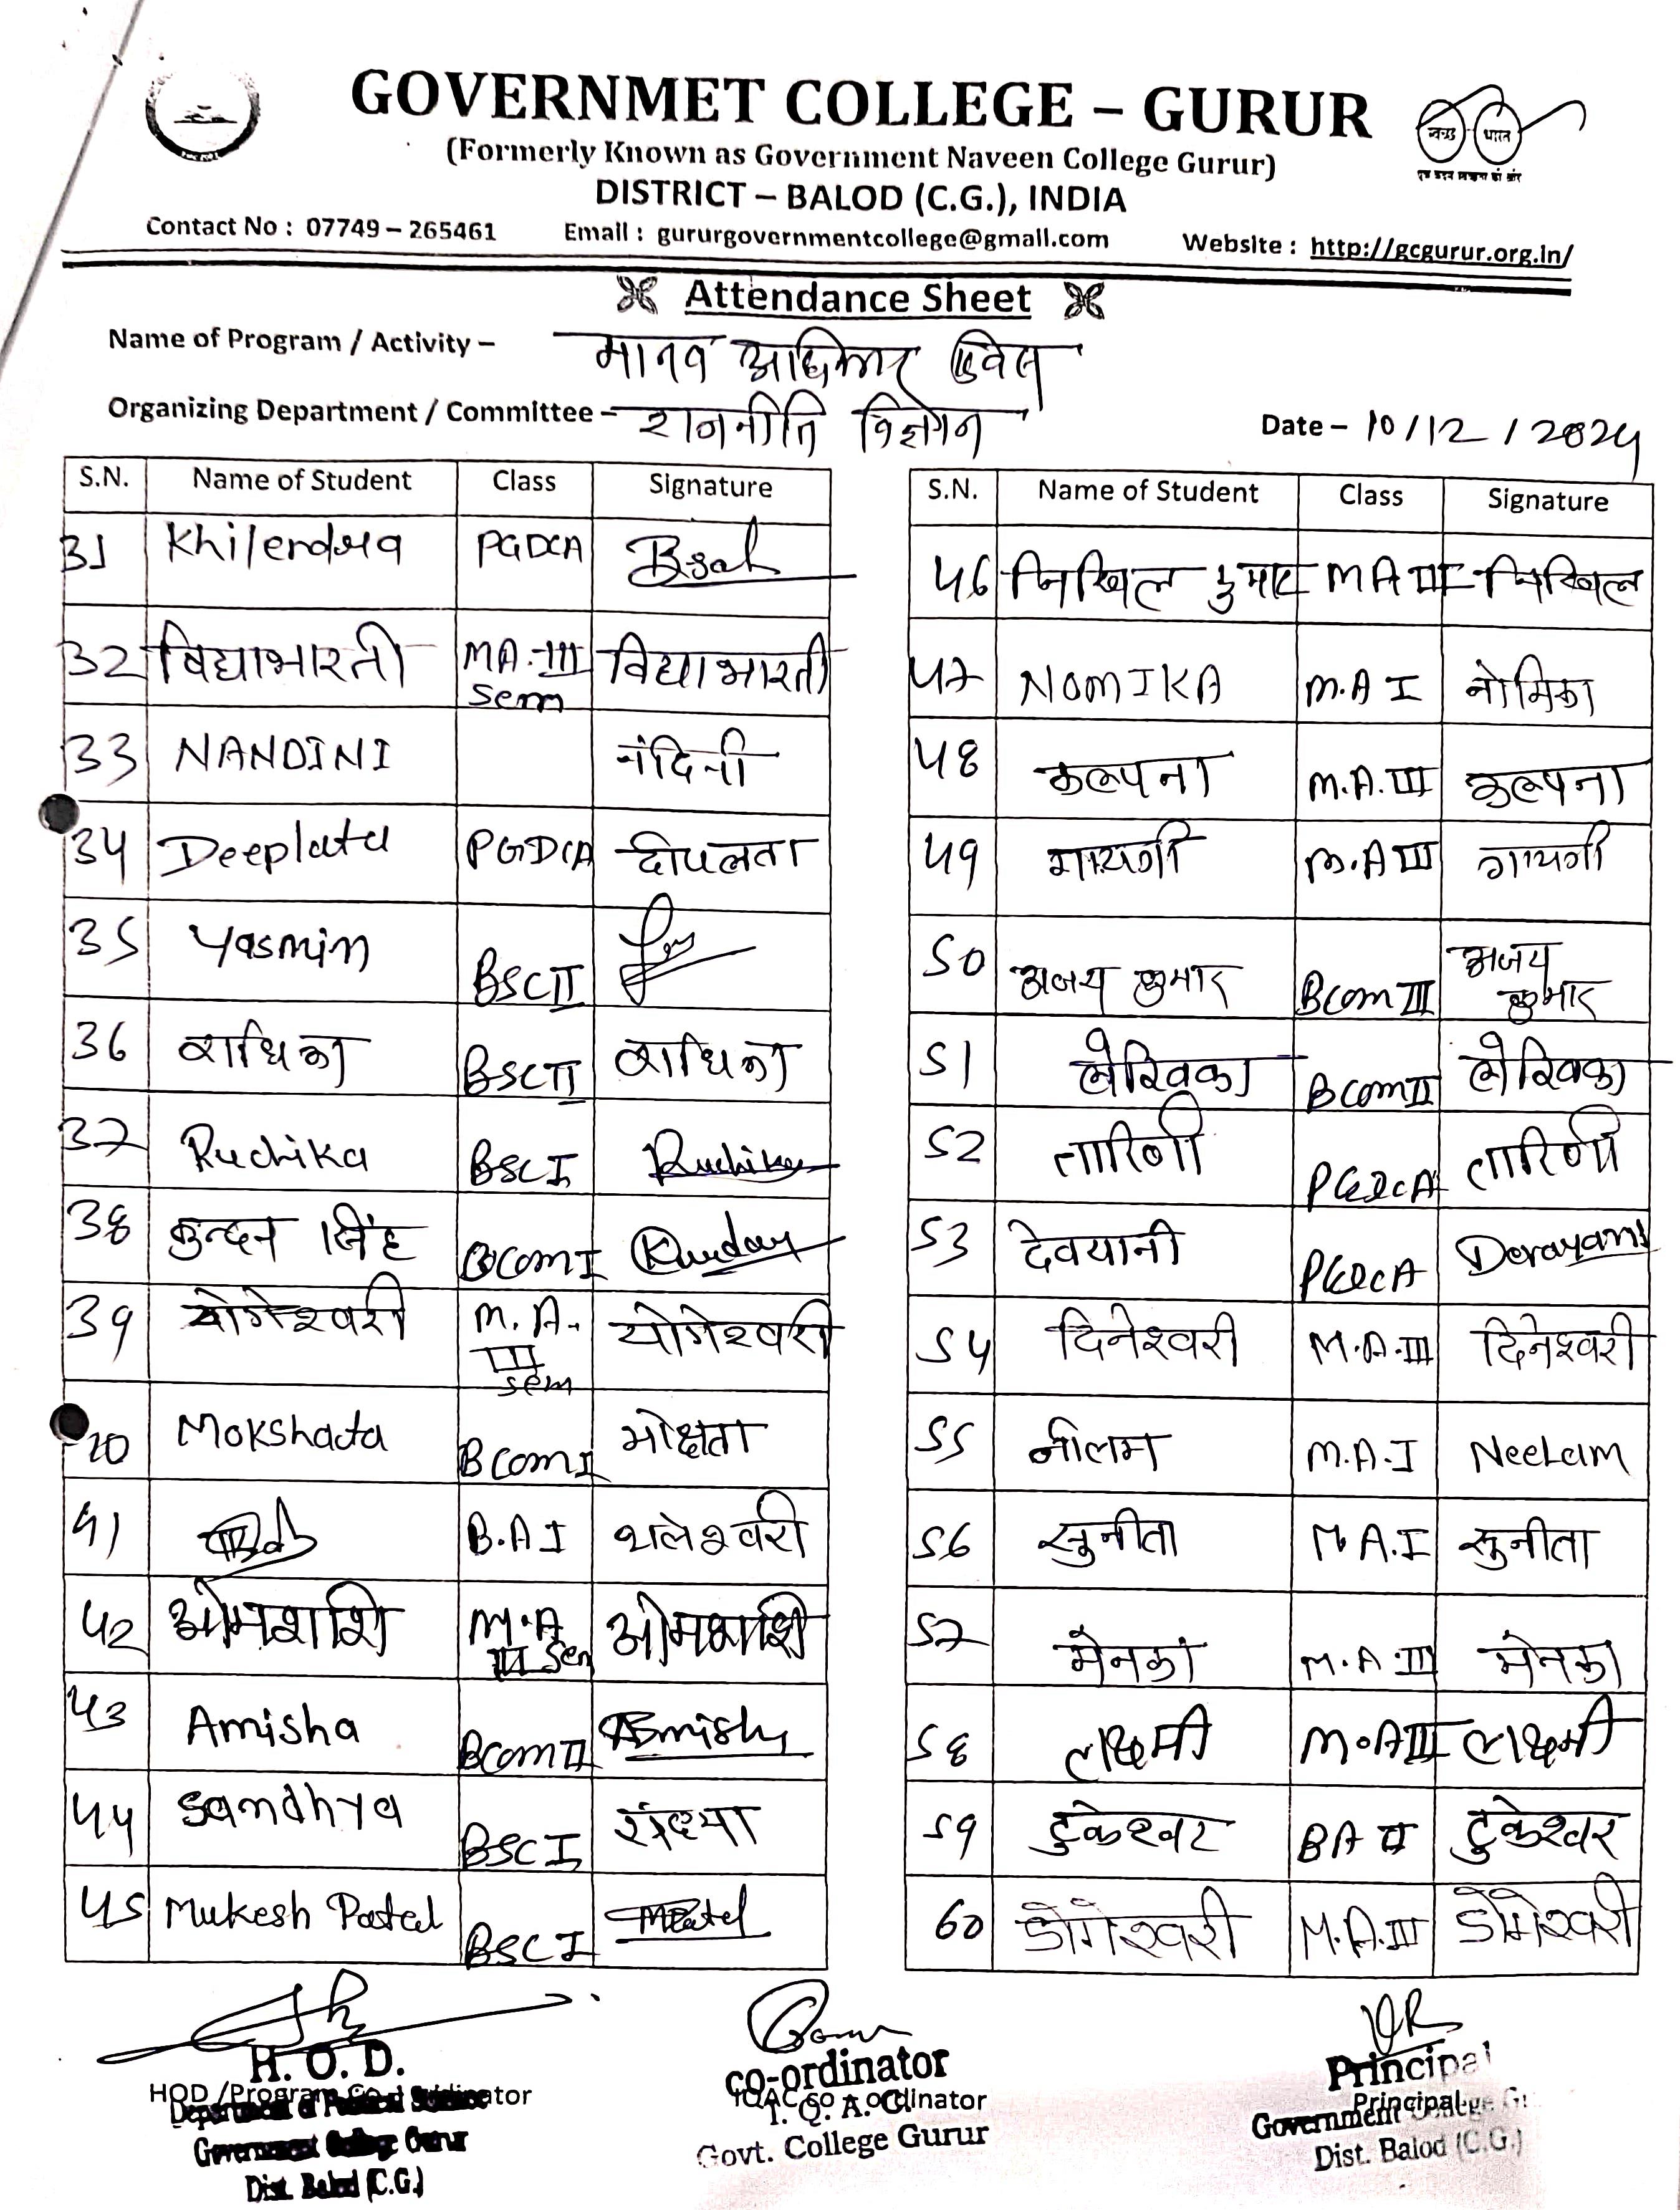 GOVERNMET COLLEGE – GURUR
(Formerly Known as Government Naveen College Gurur)
DISTRICT – BALOD (C.G.), INDIA
स्वच्छ भारत
एक कदम स्वच्छता की ओर
Contact No : 07749 – 265461 Email : gururgovernmentcollege@gmail.com Website : http://gcgurur.org.in/
Attendance Sheet
Name of Program / Activity – मानव अधिकार दिवस
Organizing Department / Committee – राजनीति विज्ञान Date – 10/12/2024
S.N. Name of Student Class Signature
31 Khilendra PGDCA
32 विद्याभारती MA-III Sem विद्याभारती
33 NANDINI नंदिनी
34 Deeplata PGDCA दीपलता
35 Yasmin BSC II
36 राधिका BSC II राधिका
37 Ruchika BSC I Ruchika
38 कुन्दन सिंह BCOM I Kundan
39 योगेश्वरी M.A. III sem योगेश्वरी
40 Mokshada BCOM I मोक्षता
41 B.A I थलेश्वरी
42 ओमशशि M.A III Sem ओमशशि
43 Amisha BCOM II Amisha
44 Sandhya BSC I संध्या
45 Mukesh Patel BSC I MPatel
S.N. Name of Student Class Signature
46 निखिल कुमार MA III निखिल
47 NOMIKA M.A I नोमिका
48 कल्पना M.A. III कल्पना
49 गायत्री M.A III गायत्री
50 अजय कुमार BCOM III अजय कुमार
51 लेखिका BCOM II लेखिका
52 तारिणी PGDCA तारिणी
53 देवयानी PGDCA Devayani
54 दिनेश्वरी M.A.III दिनेश्वरी
55 नीलम M.A.I Neelam
56 सुनीता M.A.I सुनीता
57 मेनका M.A.III मेनका
58 लक्ष्मी M.A III लक्ष्मी
59 टुकेश्वर BA II टुकेश्वर
60 डोमेश्वरी M.A.III डोमेश्वरी
H. O. D.
HOD /Program Co-ordinator
Department of Political Science
Government College Gurur
Dist. Balod (C.G.)
co-ordinator
IQAC co ordinator
I. Q. A. C.
Govt. College Gurur
Principal
Principal
Government College Gurur
Dist. Balod (C.G.)